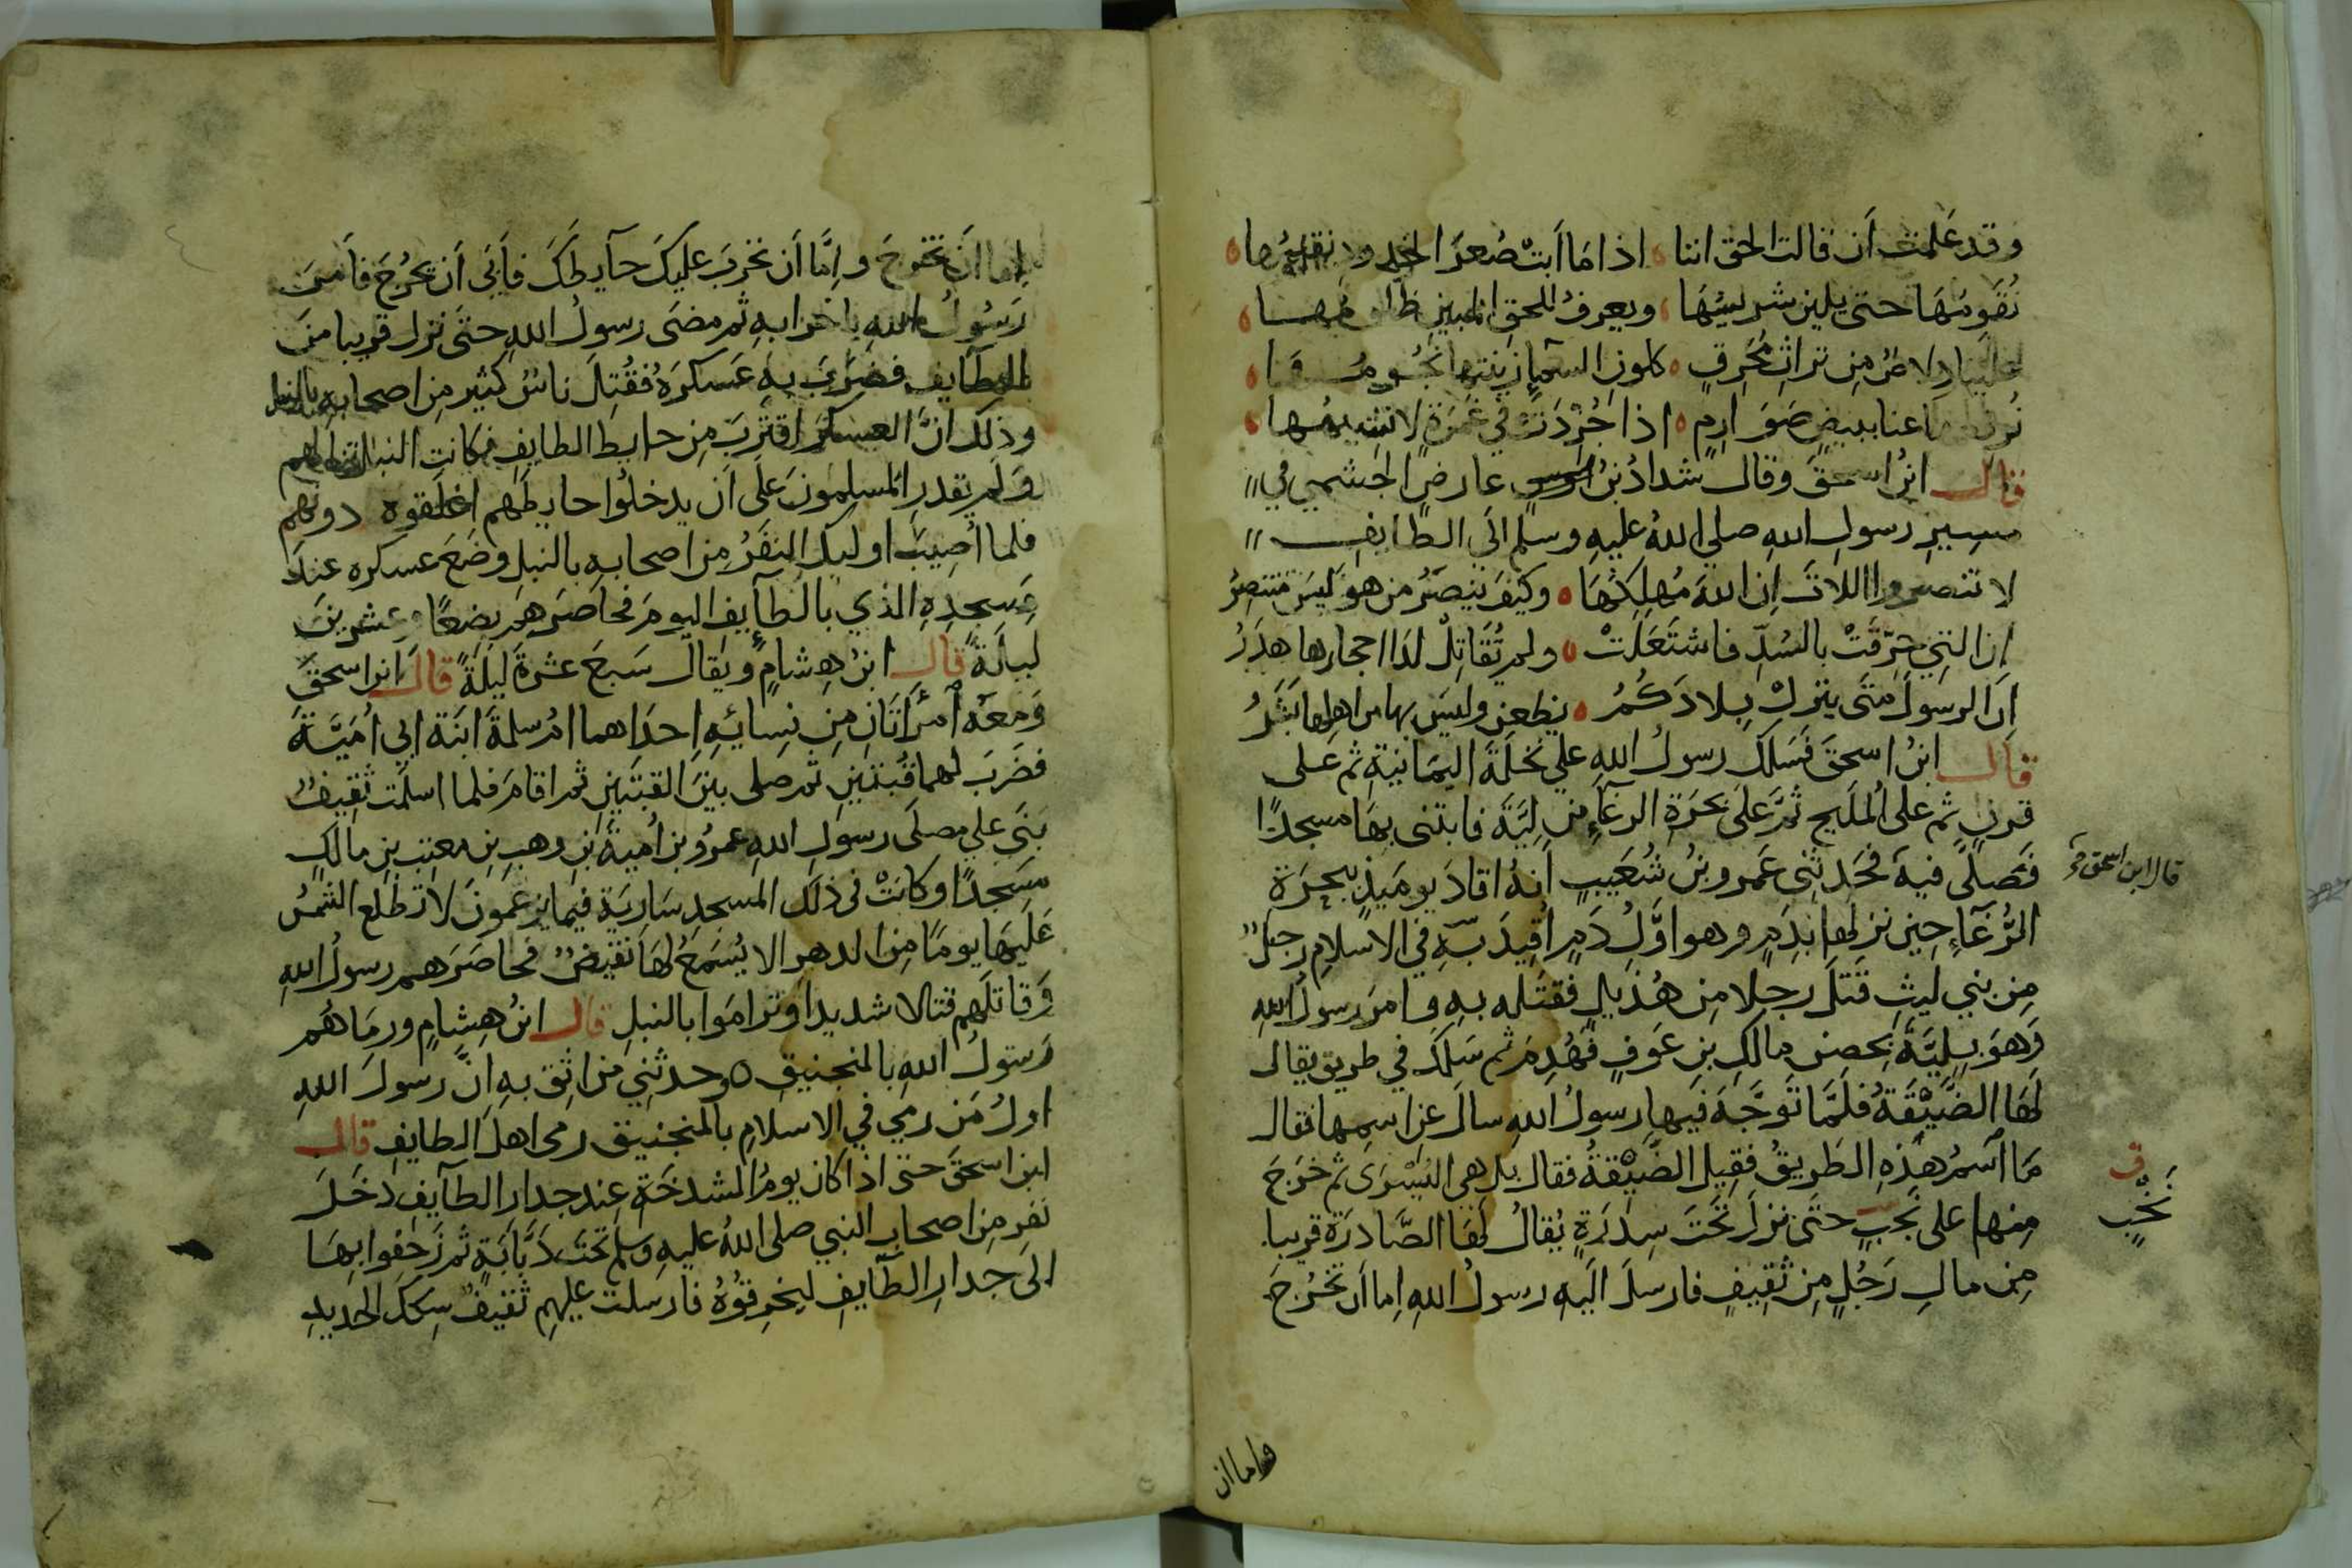 وقد عَلمت أن قالت الحق اننا ه اذا مَا أبَتْ صُعرُ الخدود نقيمُها ه
نُقَوِمُهَا حتى يلين شريسُهَا ه ويعرفُ للحق المبينِ ظلومُهــا ه
علينا دِلاصٌ مِن تراثِ مُحَرِقٍ ه كلونِ السمآءِ زينتها نجُـومُـهَـا ه
نُرفهُها عنا ببيضٍ صَوَارِمٍ ه اذا جُرّدَتْ في غمْرَةٍ لا نَشيمُهــا ه
قالــ ابنُ اسحقَ وقال شدادُ بنُ عارضٍ الجشمي في
مسيرِ رسولِ اللهِ صلى اللهُ عليهِ وسلم الَى الـطـايـفِــ
لا تنصروا اللاتَ إن اللهَ مُهلِكُهَا ه وكيْفَ ينصَرُ من هو لَيسَ مُنتَصِرُ
إن التي حُرِّقَتْ بالسُدِّ فاشتَعَلتْ ه ولم تُقَاتِلْ لدَا احجارها هَدَرُ
ان الرسولَ متَى ينزلْ بِـلادَكُـمُ ه يظعن وليسَ بها من اهلِها بَشَرُ
قالــ ابنُ اسحقَ فَسَلكَ رسولُ اللهِ علي نخلَةَ اليمَانيَةِ ثم عَـلى
قرنٍ ثم على المُلَيحِ ثمَّ عَلَى بحرَةِ الرغآءِ مِن لِيَّةَ فابتنى بِهَا مسجدًا
فَصَلَّى فيه فحَدثنِى عَمرو بنُ شُعَيبٍ انهُ اقادَ يوميَذٍ ببحرَةِ
الرُّغآءِ حِينَ نزلهَا بدَمٍ وهو اوَّلُ دَمٍ اُقِيدَ بهِ في الاسلامِ رجلٌ
مِن بني ليثِ قتَلَ رجلا مِن هُذَيلٍ فقتَله به وامرَ رسولُ اللهِ
وَهوَ بِلِيَّةَ بِحصن مالكِ بنِ عَوفٍ فهُدِمَ ثم سَلكَ في طريق يقال
لهَا الضَّيْقَةُ فلَمَّا توَجَّهَ فيها رسولُ اللهِ سالَ عن اسمِها فقال
مَا اسمُ هَذِهِ الطَريقُ فقِيل الضَّيْقةُ فقال بل هى اليُسْرَى ثم خرَجَ
مِنها على نَخبٍ حتى نزلَ تحَتَ سِدْرَةٍ يُقالُ لهَا الصَّادرَةُ قريبا
مِن مالِ رَجُلٍ مِن ثقِيفٍ فارسلَ الَيهِ رسولُ اللهِ اِما أن تخْرُجَ
قال ابن اسحق
ف
نَخْبٍ
واما ان
اِما أن تخرجَ وإمَّا أن نخربَ عليكَ حآيطَكَ فأبَى أن يخرُجَ فأمرَ
رَسُولُ اللهِ باخرابهِ ثم مضَى رسولُ اللهِ حتَى نزل قريبا منَ
الطآيف فضرَبَ بهِ عَسكرَهُ فقُتِلَ ناسٌ كثير مِن اصحابهِ بالنبل
وذلك انَّ العسكرَ اقتَربَ مِن حايط الطايفِ فكانتِ النبل تنالهم
وَلم يقدرِ المسلمونَ عَلَى أن يدخلُوا حايطَهم اغلقوه دونهم
فلما أُصِيبَ اوليك النفَرُ مِن اصحابهِ بالنبل وضَعَ عسكره عندَ
مَسجِدِهِ الذي بالطآيفِ اليومَ فحَاصَرَهُم بضعًا وعشرينَ
ليلةً قالــ ابنُ هِشامٍ ويقالُ سَبعَ عشرةَ ليلَةً قالــ ابن اسحقَ
وَمعَه امرأتَانِ مِن نِسائِهِ اِحدَاهما امُ سلمةَ ابنَة ابِي اُمَيَّةَ
فضَربَ لهما قبتَينِ ثم صلى بينَ القبتَينِ ثم اقامَ فلما اسلمت ثقِيفٌ
بنَى علي مصلَى رسولِ اللهِ عمرُو بن اُميةَ بنِ وهبِ بنِ معتِبِ بنِ مالكٍ
مَسجدًا وكانَتْ فى ذلك المسجدِ سَاريَة فيمَا يزعمونَ لا تطلع الشمسُ
عَليهَا يومًا مِن الدهرِ الا يُسْمَعُ لهَا نقيضٌ فحاصَرَهم رسولُ اللهِ
وَقاتلَهم قتالا شديدا وترامَوا بالنبلِ قالــ ابنُ هِشامٍ ورمَاهُم
رَسولُ اللهِ بالمنجنيقِ ه وحدثني من اثق بهِ انَّ رسولَ اللهِ
اولُ مَن رمي في الاسلامِ بالمنجنيق رمى اهلَ الطايفِ قالــ
ابن اسحقَ حتى اذا كان يومُ الشدخَةِ عند جدار الطآيفِ دَخَلَ
نفر مِن اصحابِ النبي صلى اللهُ عليه وسلم تحتَ دَبَّابَةٍ ثم زَحفوا بِهَا
الَى جدارِ الطّآيفِ ليخرِقُوُهُ فارسلت عليهم ثقيفٌ سِكَكَ الحديدِ